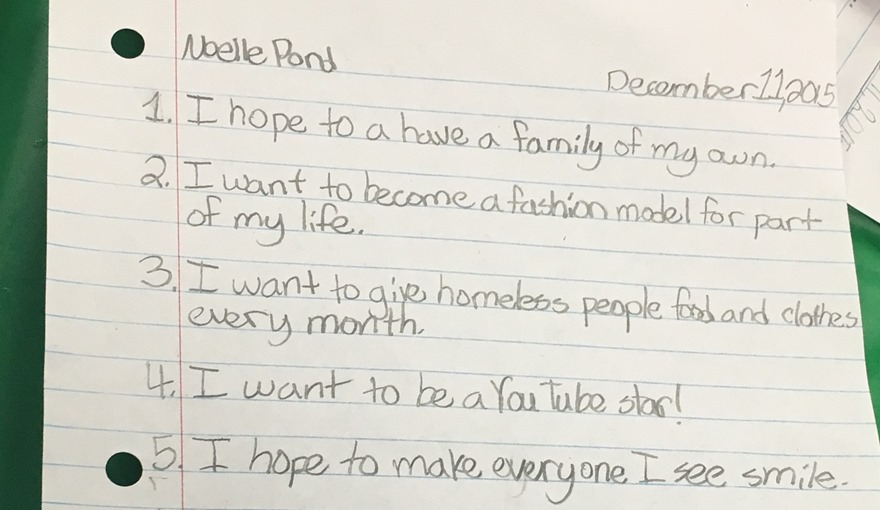 Noelle Pond
December 11, 2015
1. I hope to a have a family of my own.
2. I want to become a fashion model for part
of my life.
3. I want to give homeless people food and clothes
every month.
4. I want to be a YouTube star!
5. I hope to make everyone I see smile.